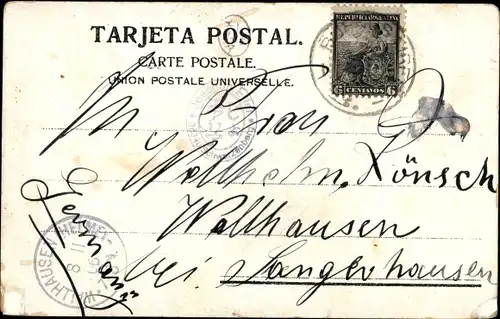 TARJETA POSTAL.
CARTE POSTALE.
UNION POSTALE UNIVERSELLE.
REPUBLICA ARGENTINA
6 CENTAVOS 6
Frau
Wilhelm. Rönsch
Wallhausen
bei Sangerhausen
Germany
WALLHAUSEN (HELME)